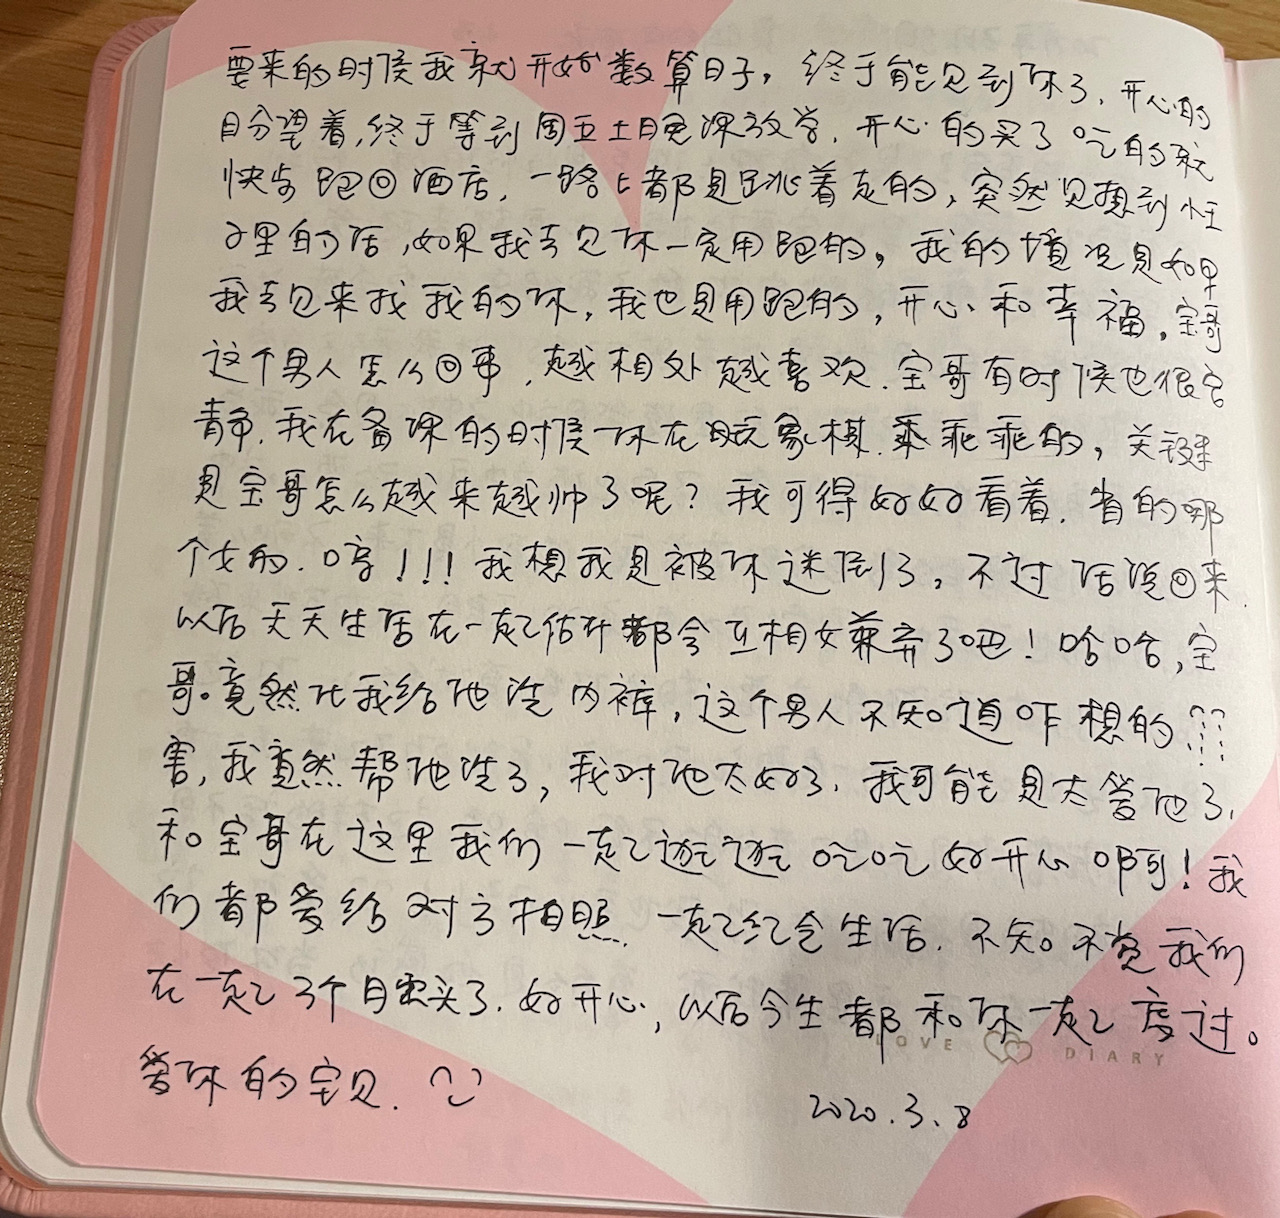 要来的时候我就开始数算日子，终于能见到你了，开心的
日分望着，终于等到周五上晚课放学，开心的买了吃的就
快步跑回酒店，一路上都是跳着走的，突然想到
里的话，如果我去见你一定用跑的，我的境况是如果
我去见来找我的你，我也是用跑的，开心和幸福，宝哥
这个男人怎么回事，越相处越喜欢，宝哥有时候也很安
静，我在备课的时候你在玩象棋，乖乖乖的，关键
是宝哥怎么越来越帅了呢？我可得好好看着，省的哪
个女的，哼！！！我想我是被你迷倒了，不过话说回来，
以后天天生活在一起估计都会互相嫌弃了吧！哈哈，宝
哥竟然让我给他洗内裤，这个男人不知道咋想的???
害，我竟然帮他洗了，我对他太好了，我可能是太爱他了，
和宝哥在这里我们一起逛逛吃吃好开心啊！我
们都爱给对方拍照，一起纪念生活，不知不觉我们
在一起3个月零头了，好开心，以后今生都和你一起度过。
爱你的宝贝.
LOVE DIARY
2020.3.8